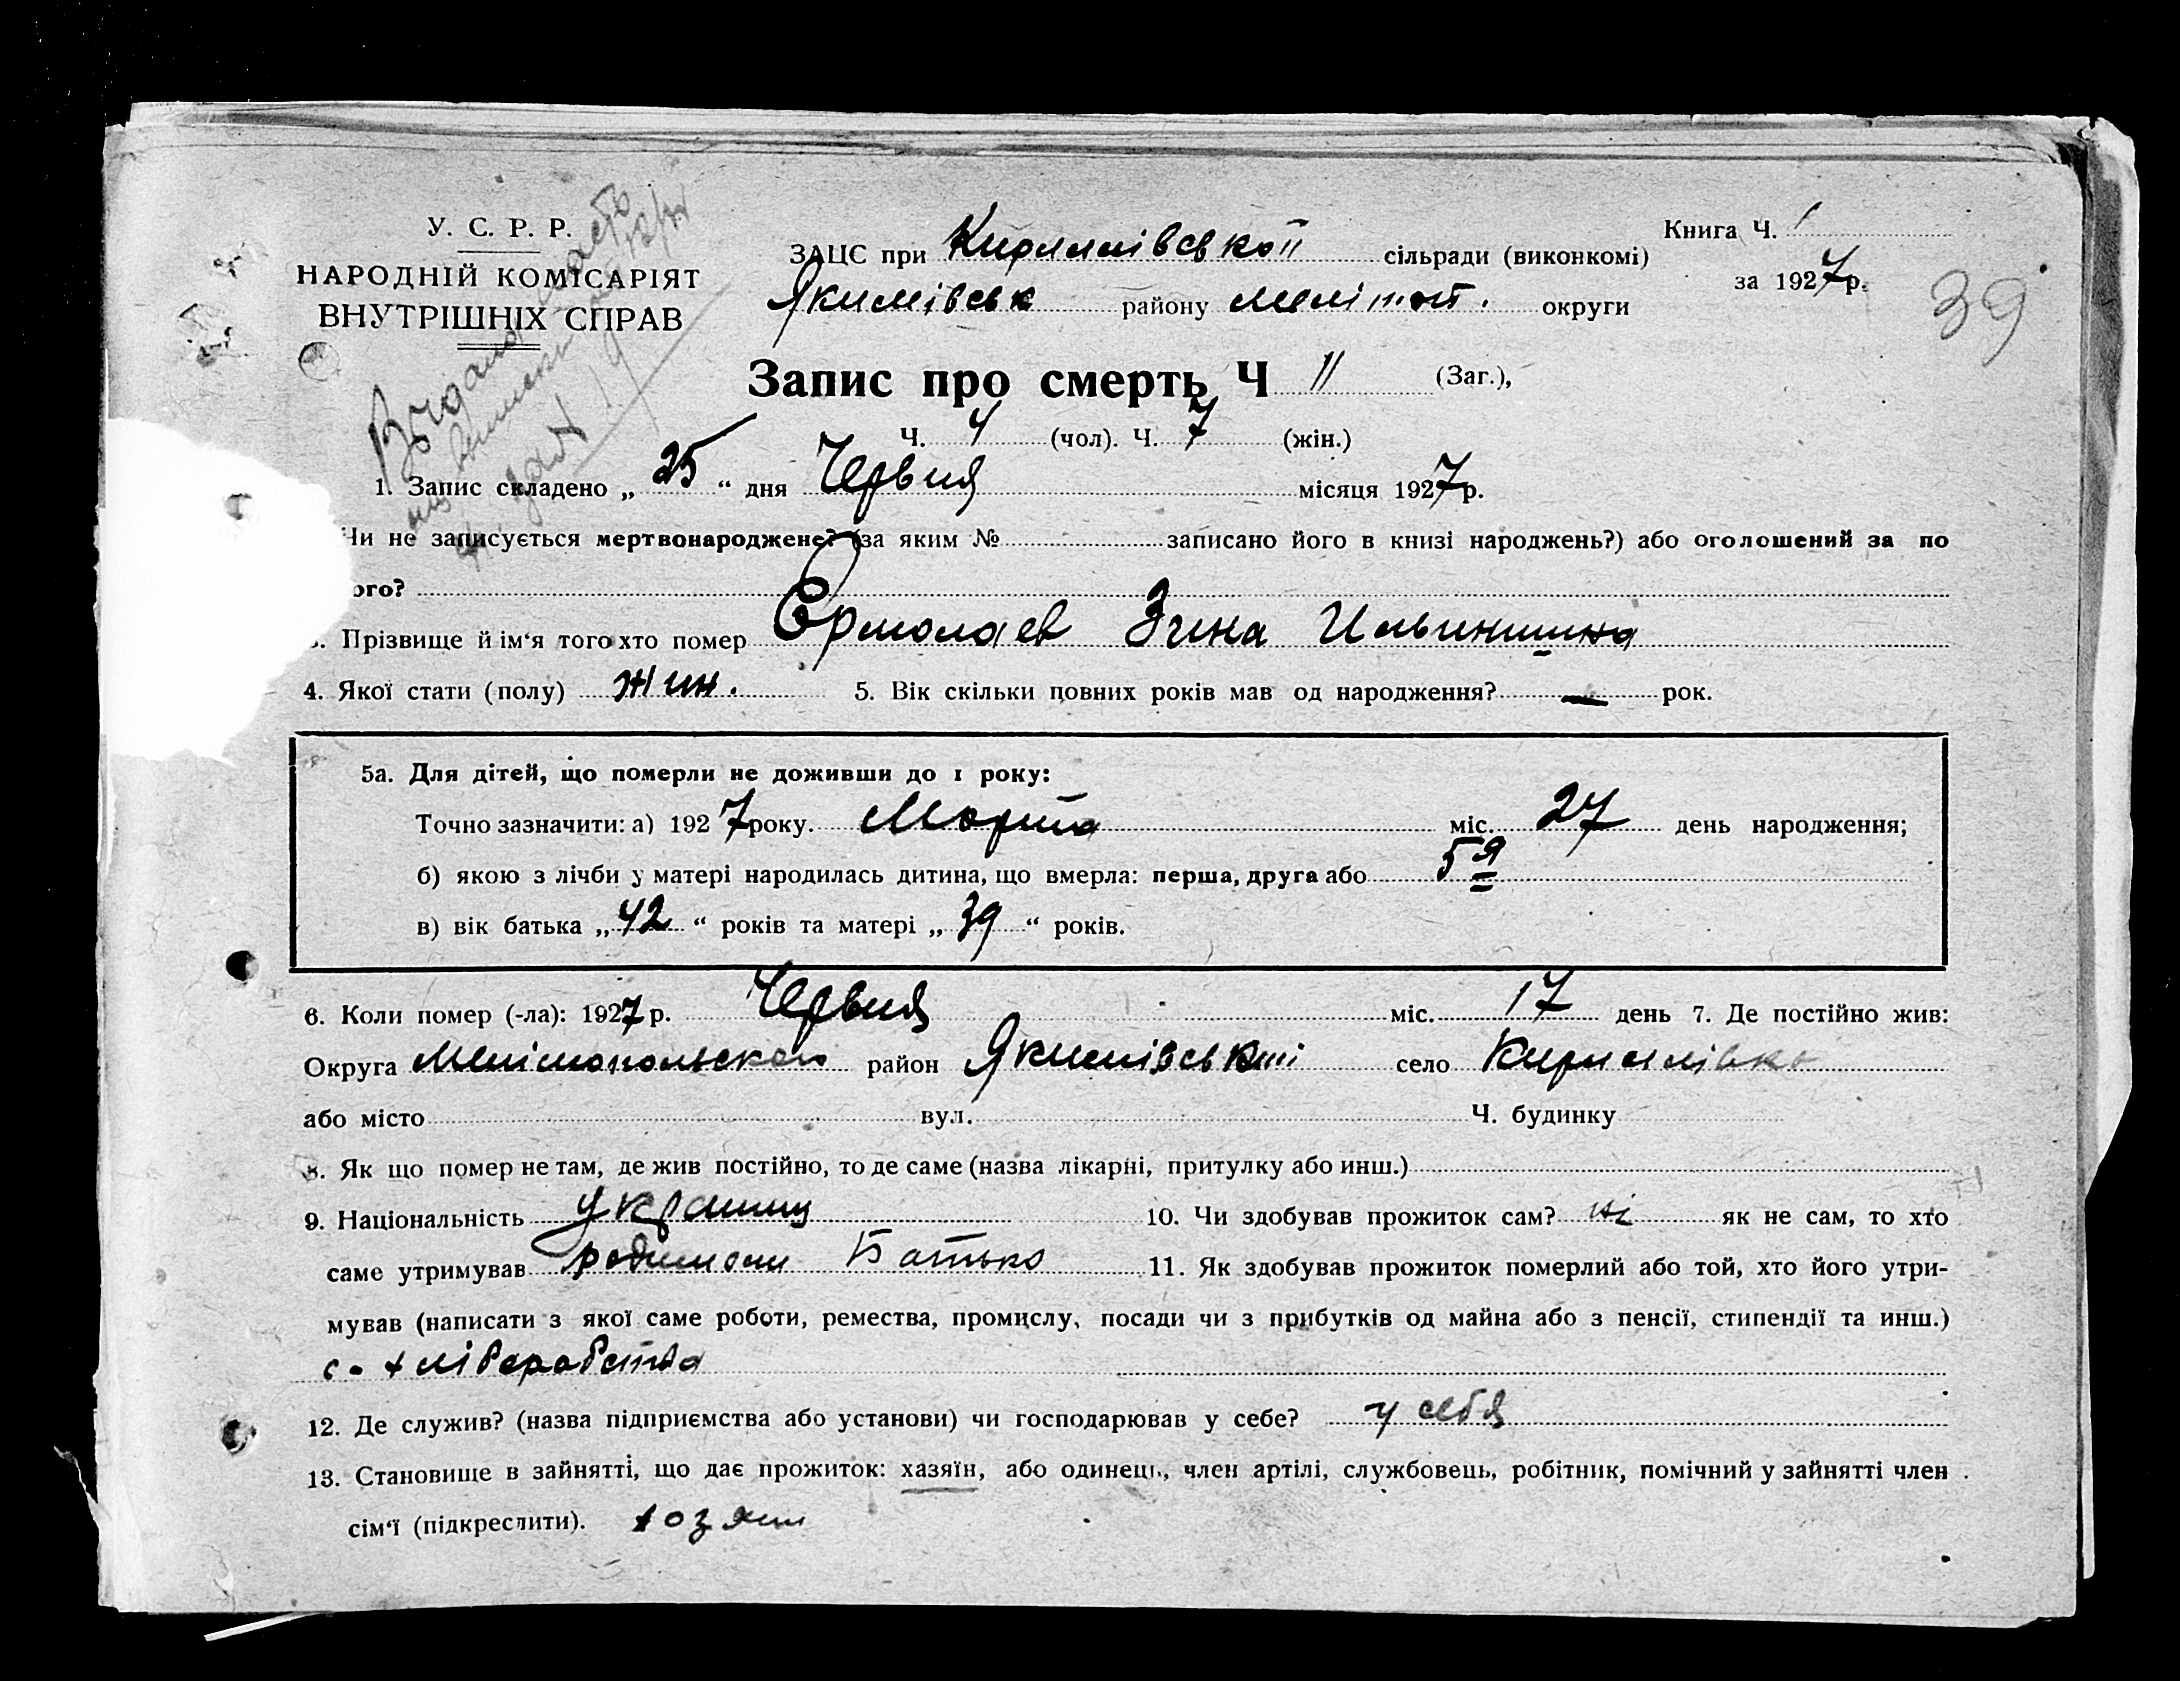 У. С. Р. Р.
НАРОДНІЙ КОМІСАРІЯТ
ВНУТРІШНІХ СПРАВ
ЗАЦС при Кирилівської сільради (виконкомі)
Якимівськ району Меліт. округи
Книга Ч. 1
за 1927 р.
39
Запис про смерть Ч 11 (Заг.),
Ч. 4 (чол). Ч. 7 (жін.)
1. Запис складено „ 25 “ дня Червня місяця 1927 р.
Чи не записується мертвонароджене? (за яким № записано його в книзі народжень?) або оголошений за по
ого?
Прізвище й ім‘я того хто помер Єрмолаев Зина Ильинишна
4. Якої стати (полу) жин. 5. Вік скільки повних років мав од народження? — рок.
5а. Для дітей, що померли не доживши до 1 року:
Точно зазначити: а) 1927 року. Марта міс. 27 день народження;
б) якою з лічби у матері народилась дитина, що вмерла: перша, друга або 5я
в) вік батька „ 42 “ років та матері „ 39 “ років.
6. Коли помер (-ла): 1927 р. Червня міс. 17 день 7. Де постійно жив:
Округа район Якимівський село Кирилівка
або місто вул. Ч. будинку
8. Як що помер не там, де жив постійно, то де саме (назва лікарні, притулку або инш.)
9. Національність 10. Чи здобував прожиток сам? ні як не сам, то хто
саме утримував Батько 11. Як здобував прожиток померлий або той, хто його утри-
мував (написати з якої саме роботи, ремества, промислу, посади чи з прибутків од майна або з пенсії, стипендії та инш.)
с. хліборобства
12. Де служив? (назва підприємства або установи) чи господарював у себе? у себя
13. Становище в зайнятті, що дає прожиток: хазяїн, або одинець, член артілі, службовець, робітник, помічний у зайнятті член
сім‘ї (підкреслити). хозяин